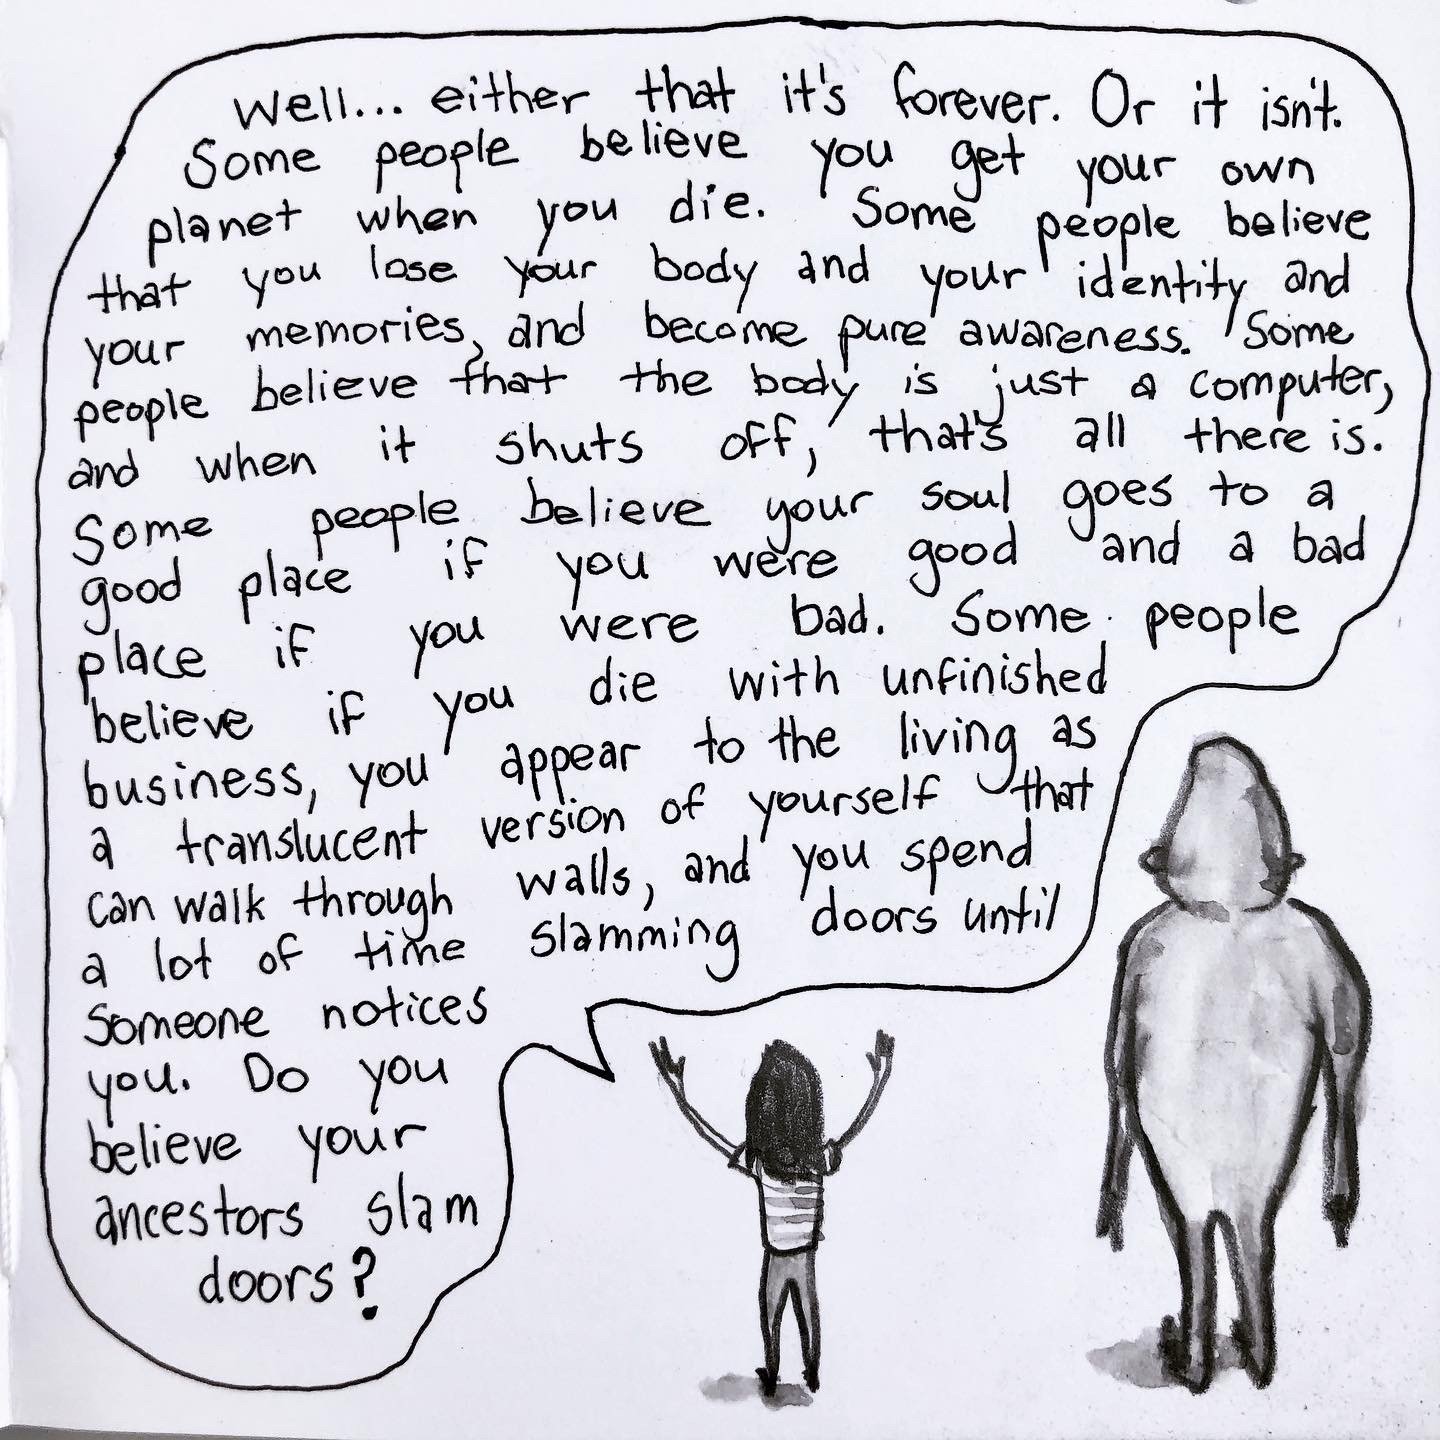 Well... either that it's forever. Or it isn't.
Some people believe you get your own
planet when you die. Some people believe
that you lose your body and your identity and
your memories, and become pure awareness. Some
people believe that the body is just a computer,
and when it shuts off, that's all there is.
Some people believe your soul goes to a
good place if you were good and a bad
place if you were bad. Some people
believe if you die with unfinished
business, you appear to the living as
a translucent version of yourself that
can walk through walls, and you spend
a lot of time slamming doors until
someone notices
you. Do you
believe your
ancestors slam
doors?